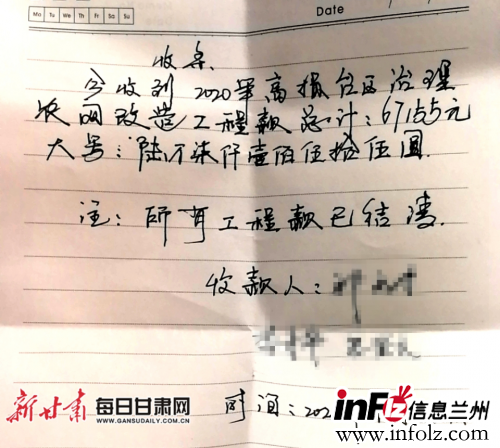 Mo Tu We Th Fr Sa Su
Date
收条
今收到2020年高损台区治理
农网改造工程款总计：67155元
大写：陆万柒仟壹佰伍拾伍圆.
注：所有工程款已结清.
收款人：
时间：202
新甘肃 每日甘肃网
WWW.GANSUDAILY.COM.CN
inFlz信息兰州
www.infolz.com